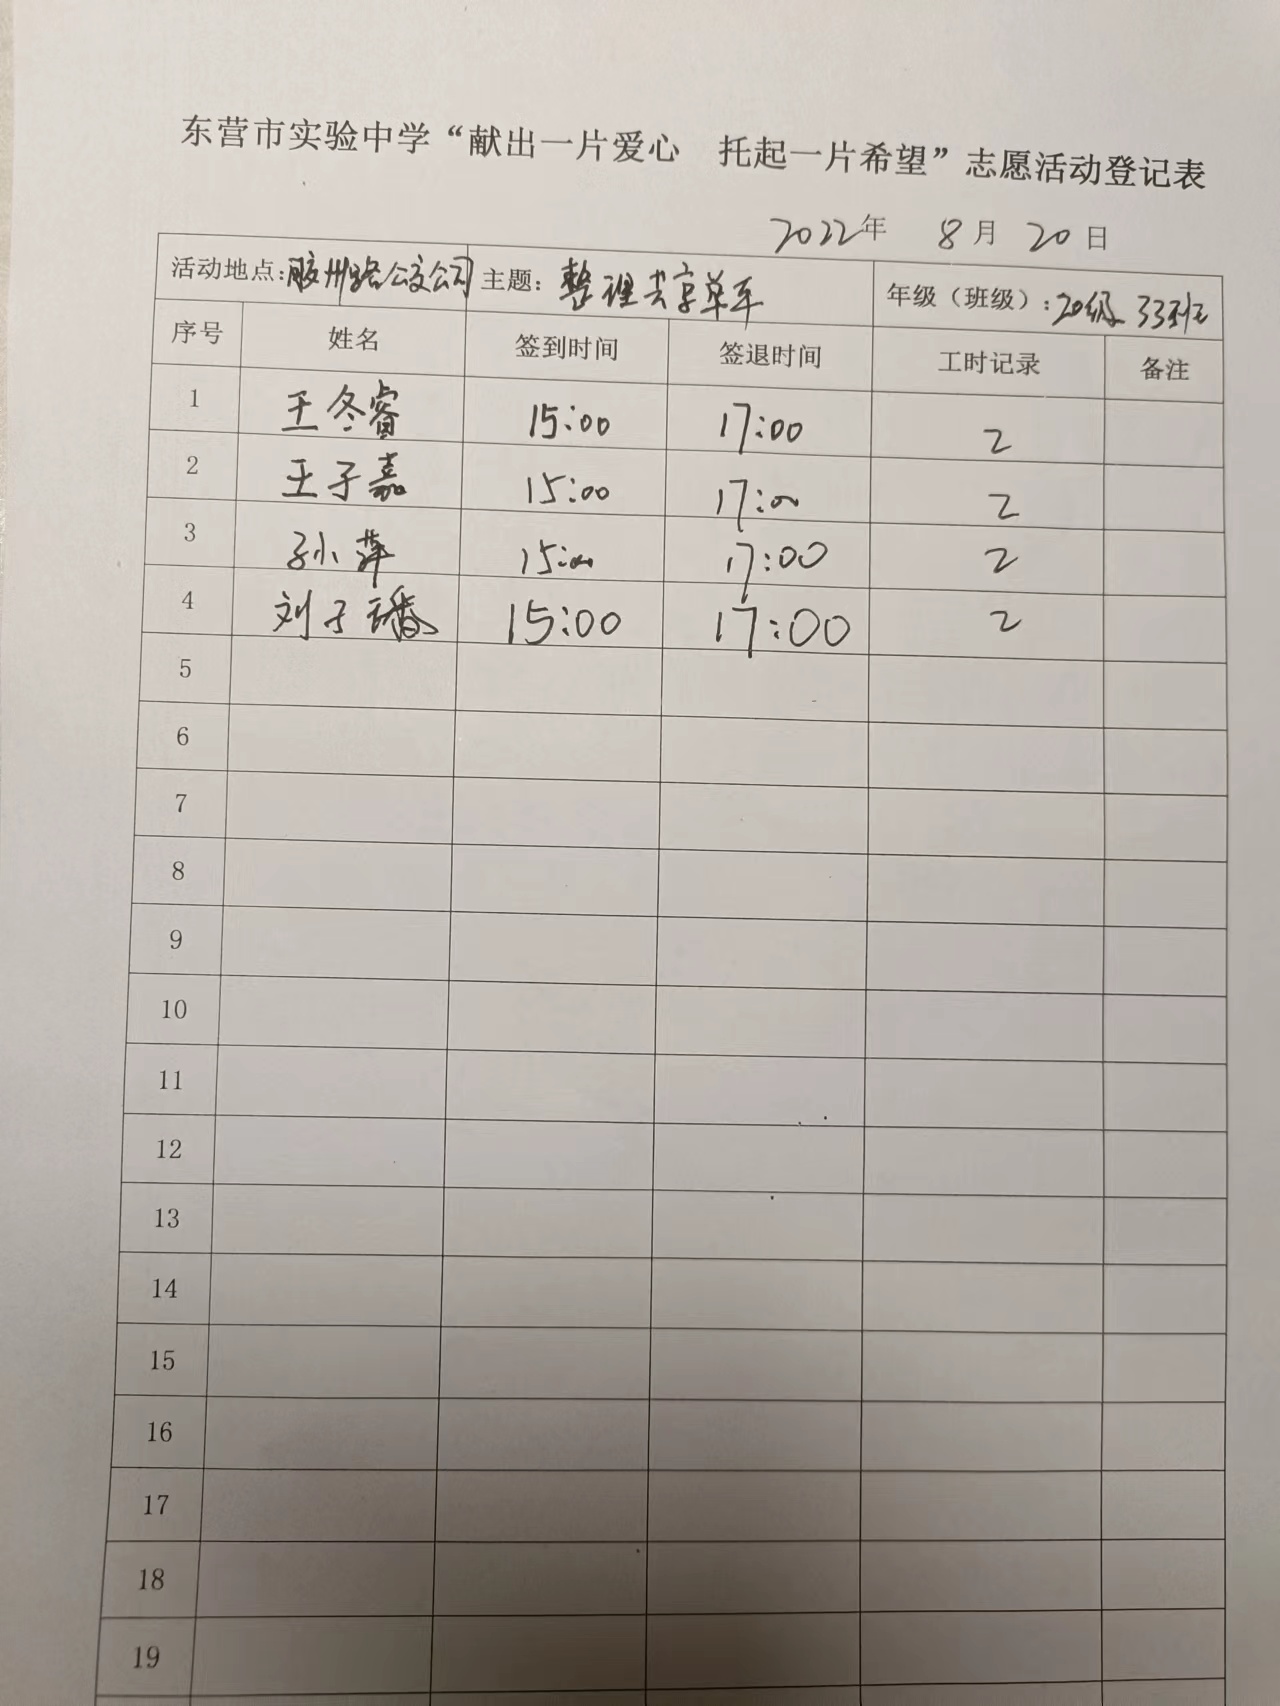 东营市实验中学“献出一片爱心 托起一片希望”志愿活动登记表
2022年 8月 20日
活动地点：胶州路公交公司 主题：整理共享单车 年级（班级）：20级 33班
序号 姓名 签到时间 签退时间 工时记录 备注
1 王冬睿 15:00 17:00 2
2 王子嘉 15:00 17:00 2
3 孙小萍 15:00 17:00 2
4 刘子璠 15:00 17:00 2
5
6
7
8
9
10
11
12
13
14
15
16
17
18
19